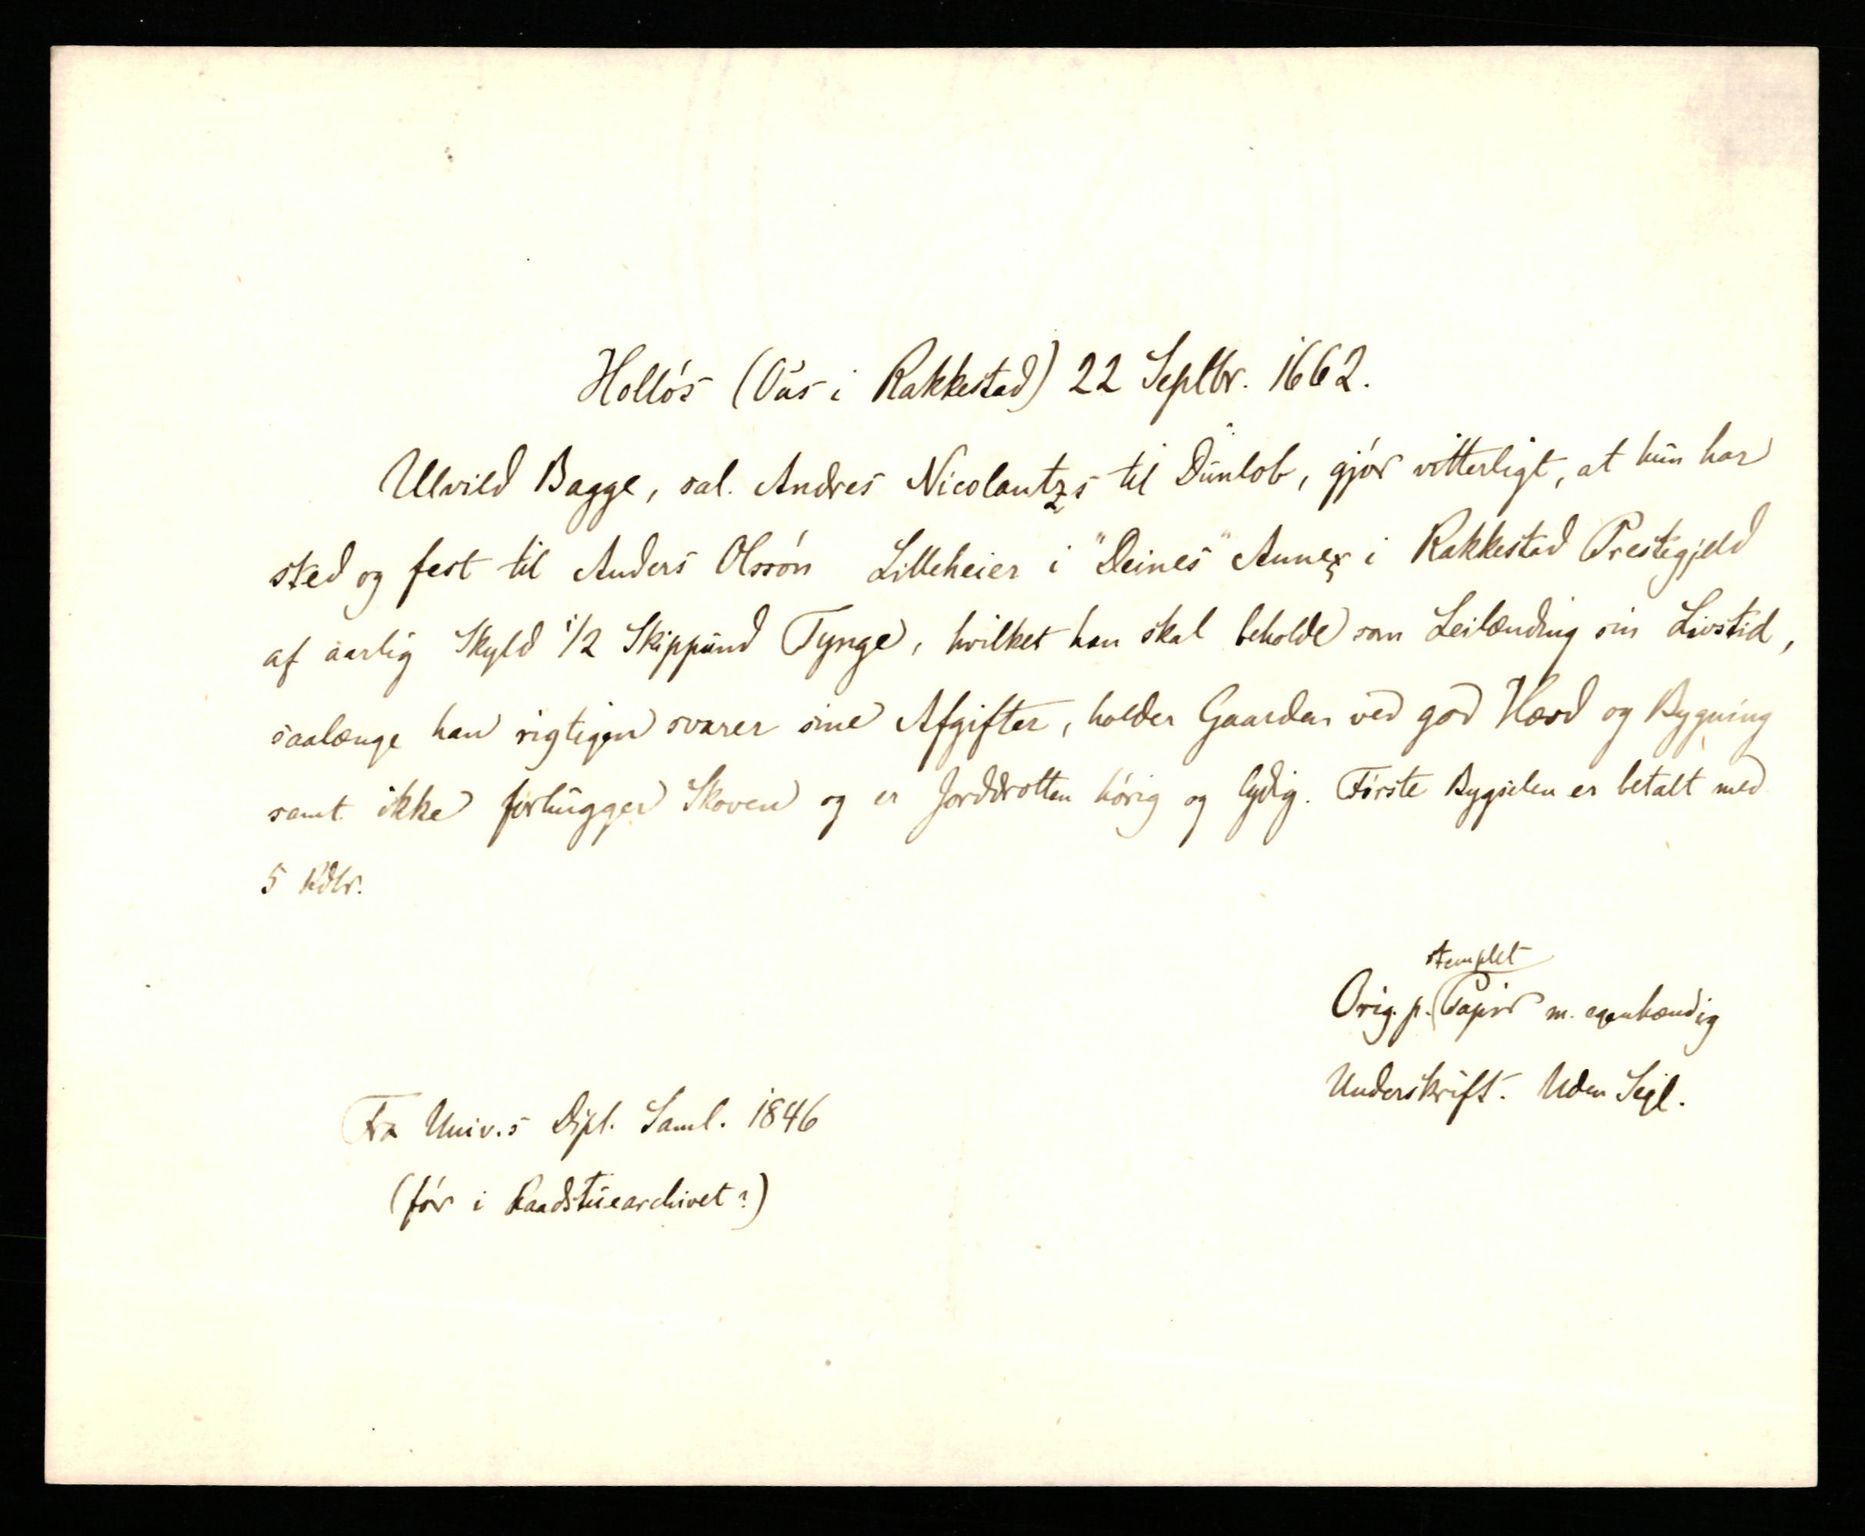 Hollós (Oús i Rakkestad) 22 Septbr. 1662.
Ulvild Bagge, sal. Andres Nicolautzs til "Dunlob", gjör vitterligt, at hun har
sted og fest til Anders Olssön Lilleheier i "Deines" Annex i Rakkestad Prestegjeld
af aarlig Skyld 1/2 Skippund Tynge, hvilket han skal beholde som Leilænding sin Livstid,
saalænge han rigtigen svarer sine Afgifter, holder Gaarden ved god Hævd og Bygning
samt ikke forhugger Skoven og er Jorddrotten hörig og lydig. Förste Bygselen er betalt med
5 Rdlr.
Orig. p. stemplet Papir m. egenhændig
Underskrift. Uden Segl.
Fra Univ.s Dipl. Saml. 1846
(för i Raadstuearchivet?)